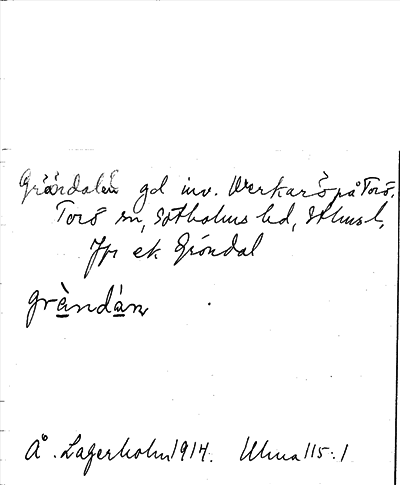 Gråndalen gd inv. Verkarö på Torö.
Torö sn, Sotholms hd, Sthms l.
Jfr ek Gröndal
gràndán
Å. Lagerholm 1914. Ulma 115:1